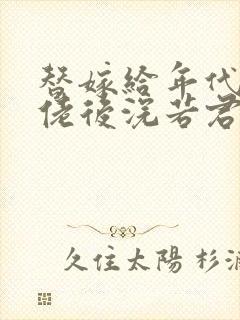 替嫁給年代
佬後浣若君
久住太陽 杉浦